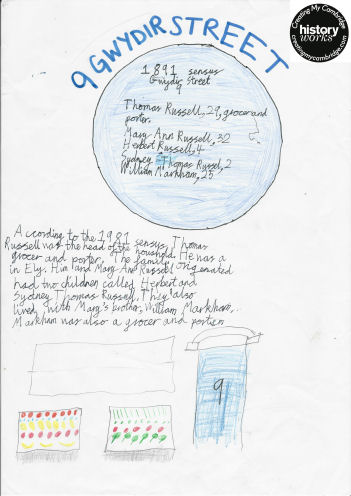 9 GWYDIR STREET
Creating My Cambridge
history
works
creatingmycambridge.com
1891 sensus
Gwydir street
Thomas Russell, 29, grocer and
porter.
Mary Ann Russell, 32
Herbert Russell, 4
Sydney Thomas Russel, 2
William Markham, 25
Acording to the 1981
sensus, Thomas
Russell was the head of the houshold. He was a
grocer and porter. The family originated
in Ely. Him and Mary Ann Russell
had two children called Herbert and
Sydney Thomas Russell, They also
lived with Mary's brother, William Markham.
Markham was also a grocer and porter
9